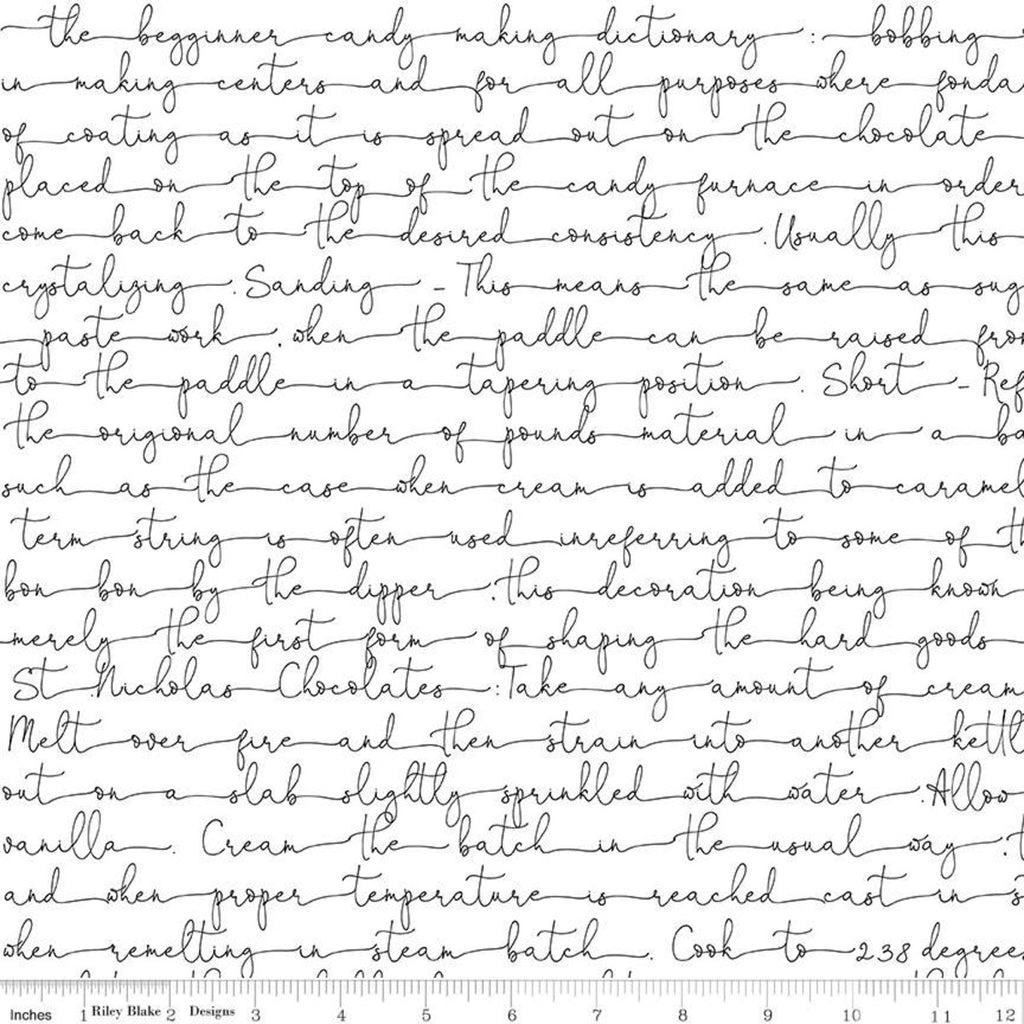 the begginner candy making dictionary : bobbing
in making centers and for all purposes where fonda
of coating as it is spread out on the chocolate
placed on the top of the candy furnace in order
come back to the desired consistency . Usually this
crystalizing . Sanding - This means the same as sug
paste work , when the paddle can be raised from
to the paddle in a tapering position . Short - Ref
the origional number of pounds material in a ba
such as the case when cream is added to caramel
term string is often used inreferring to some of th
bon bon by the dipper , this decoration being known
merely the first form of shaping the hard goods
St Nicholas Chocolates : Take any amount of cream
Melt over fire and then strain into another kettl
out on a slab slightly sprinkled with water . Allow
vanilla . Cream the batch in the usual way ; t
and when proper temperature is reached cast in s
when remelting in steam batch . Cook to 238 degrees
Inches 1 Riley Blake 2 Designs 3 4 5 6 7 8 9 10 11 12